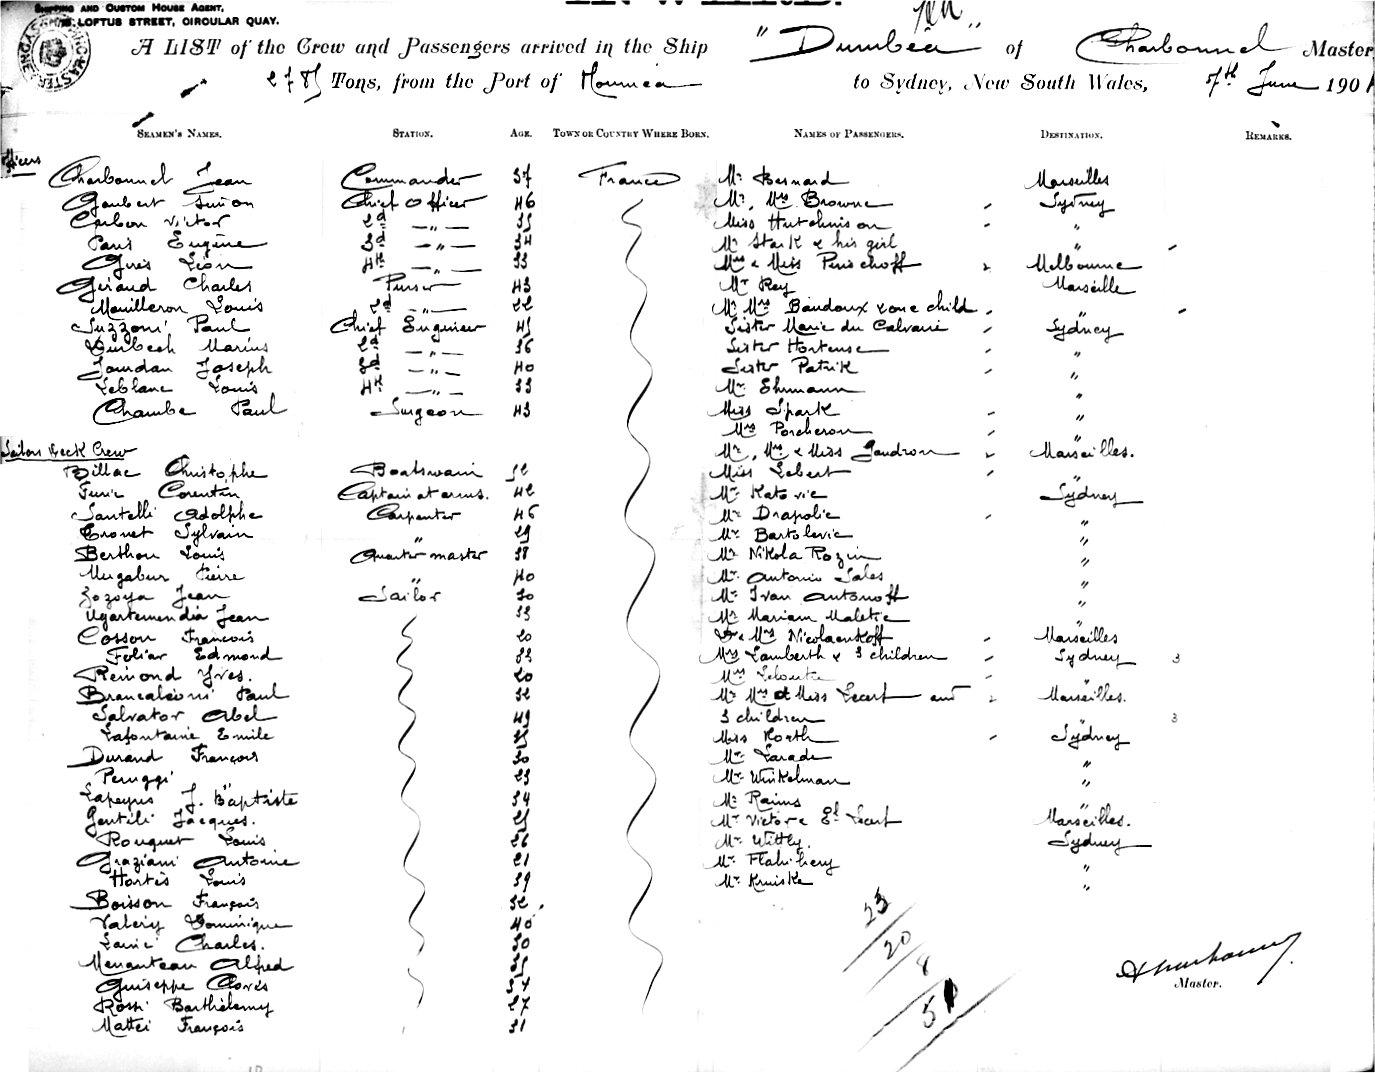 SHIPPING AND CUSTOM HOUSE AGENT,
LOFTUS STREET, CIRCULAR QUAY.
A LIST of the Crew and Passengers arrived in the Ship "Dumbéa" of Charbonnel Master
Tons, from the Port of Noumea to Sydney, New South Wales, 7th June 1901
SEAMEN'S NAMES. STATION. AGE. TOWN OR COUNTRY WHERE BORN. NAMES OF PASSENGERS. DESTINATION. REMARKS.
Officers
Charbonnel Jean Commander 37 France Mr Bernard Marseilles
Gaubert Simon Chief Officer 46 Mr, Mrs Browne Sydney
Carbon Victor 2d -"- 35 Miss Hutchinson "
Paris Eugène 3d -"- 34 Mr Stark & his girl
Gués Léon 4th -"- 33 Mrs & Miss Melbourne
Géraud Charles Purser 43 Mr Rey Marseille
Mouilleron Louis 2d -"- 22 Mr Mrs Baudoux & one child "
Suzzoni Paul Chief Engineer 45 Sister Marie du Calvaire Sydney
Marius 2d -"- 36 Sister Hortense "
Jourdan Joseph 3d -"- 40 Sister Patrik "
Leblanc Louis 4th -"- 33 Mr Ehrmann "
Chambe Paul Surgeon 43 Miss Spark "
Mrs Porcheron "
Sailors Deck Crew Mr, Mrs & Miss Gaudron Marseilles.
Billac Christophe Boatswain 52 Miss Lebert "
Corentin Captain at arms. 42 Mr Katovic Sydney
Santelli Adolphe Carpenter 46 Mr Drapolic "
Tronet Sylvain " 29 Mr Bartolovic "
Berthou Louis Quarter master 38 Mr Nikola Rozin "
Pierre " 40 Mr Antonio Sales "
Zozoya Jean Sailor 30 Mr Ivan Antonoff "
Ugartemendia Jean 33 Mr Mariam Maletic "
Cosson François 20 Dr & Mrs Nicolaenkoff Marseilles
Feliar Edmond 32 Mrs Lamberth & 3 children Sydney 3
Rémond Yves. 20 Mrs "
Brancaléoni Paul 32 Mr Mrs et Miss Lecert and Marseilles.
Salvator Abel 49 3 children " 3
Lafontaine Emile 25 Miss Korth Sydney
Durand François 30 Mr Larade "
Peruggi " 23 Mr Winkelman "
J. Baptiste 34 Mr Rains "
Gentili Jacques. 25 Mr Victor & Ed Lecert Marseilles.
Rouquet Louis 26 Mr Wittly Sydney
Graziani Antoine 21 Mr "
Hortès Louis 39 Mr Kruiske "
Boisson François 32
Valéry Dominique 40
Charles. 30
Menanteau Alfred
Guiseppe
Rossi Barthélemy 27
Mattei François 31
23
20
8
51
Master.